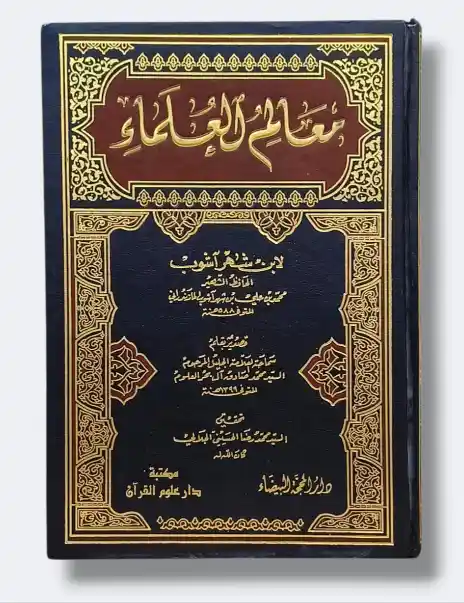 معالم العلماء
لابن شهر آشوب
الحافظ الشهير
محمد بن علي بن شهر آشوب المازندراني
المتوفى ٥٨٨ هـ
تصدير بقلم
سماحة العلامة الجليل المرحوم
السيد محمد صادق آل بحر العلوم
المتوفى ١٣٩٩ هـ
تحقيق
السيد محمد رضا الحسيني الجلالي
كان الله له
دار المحجة البيضاء
مكتبة
دار علوم القرآن